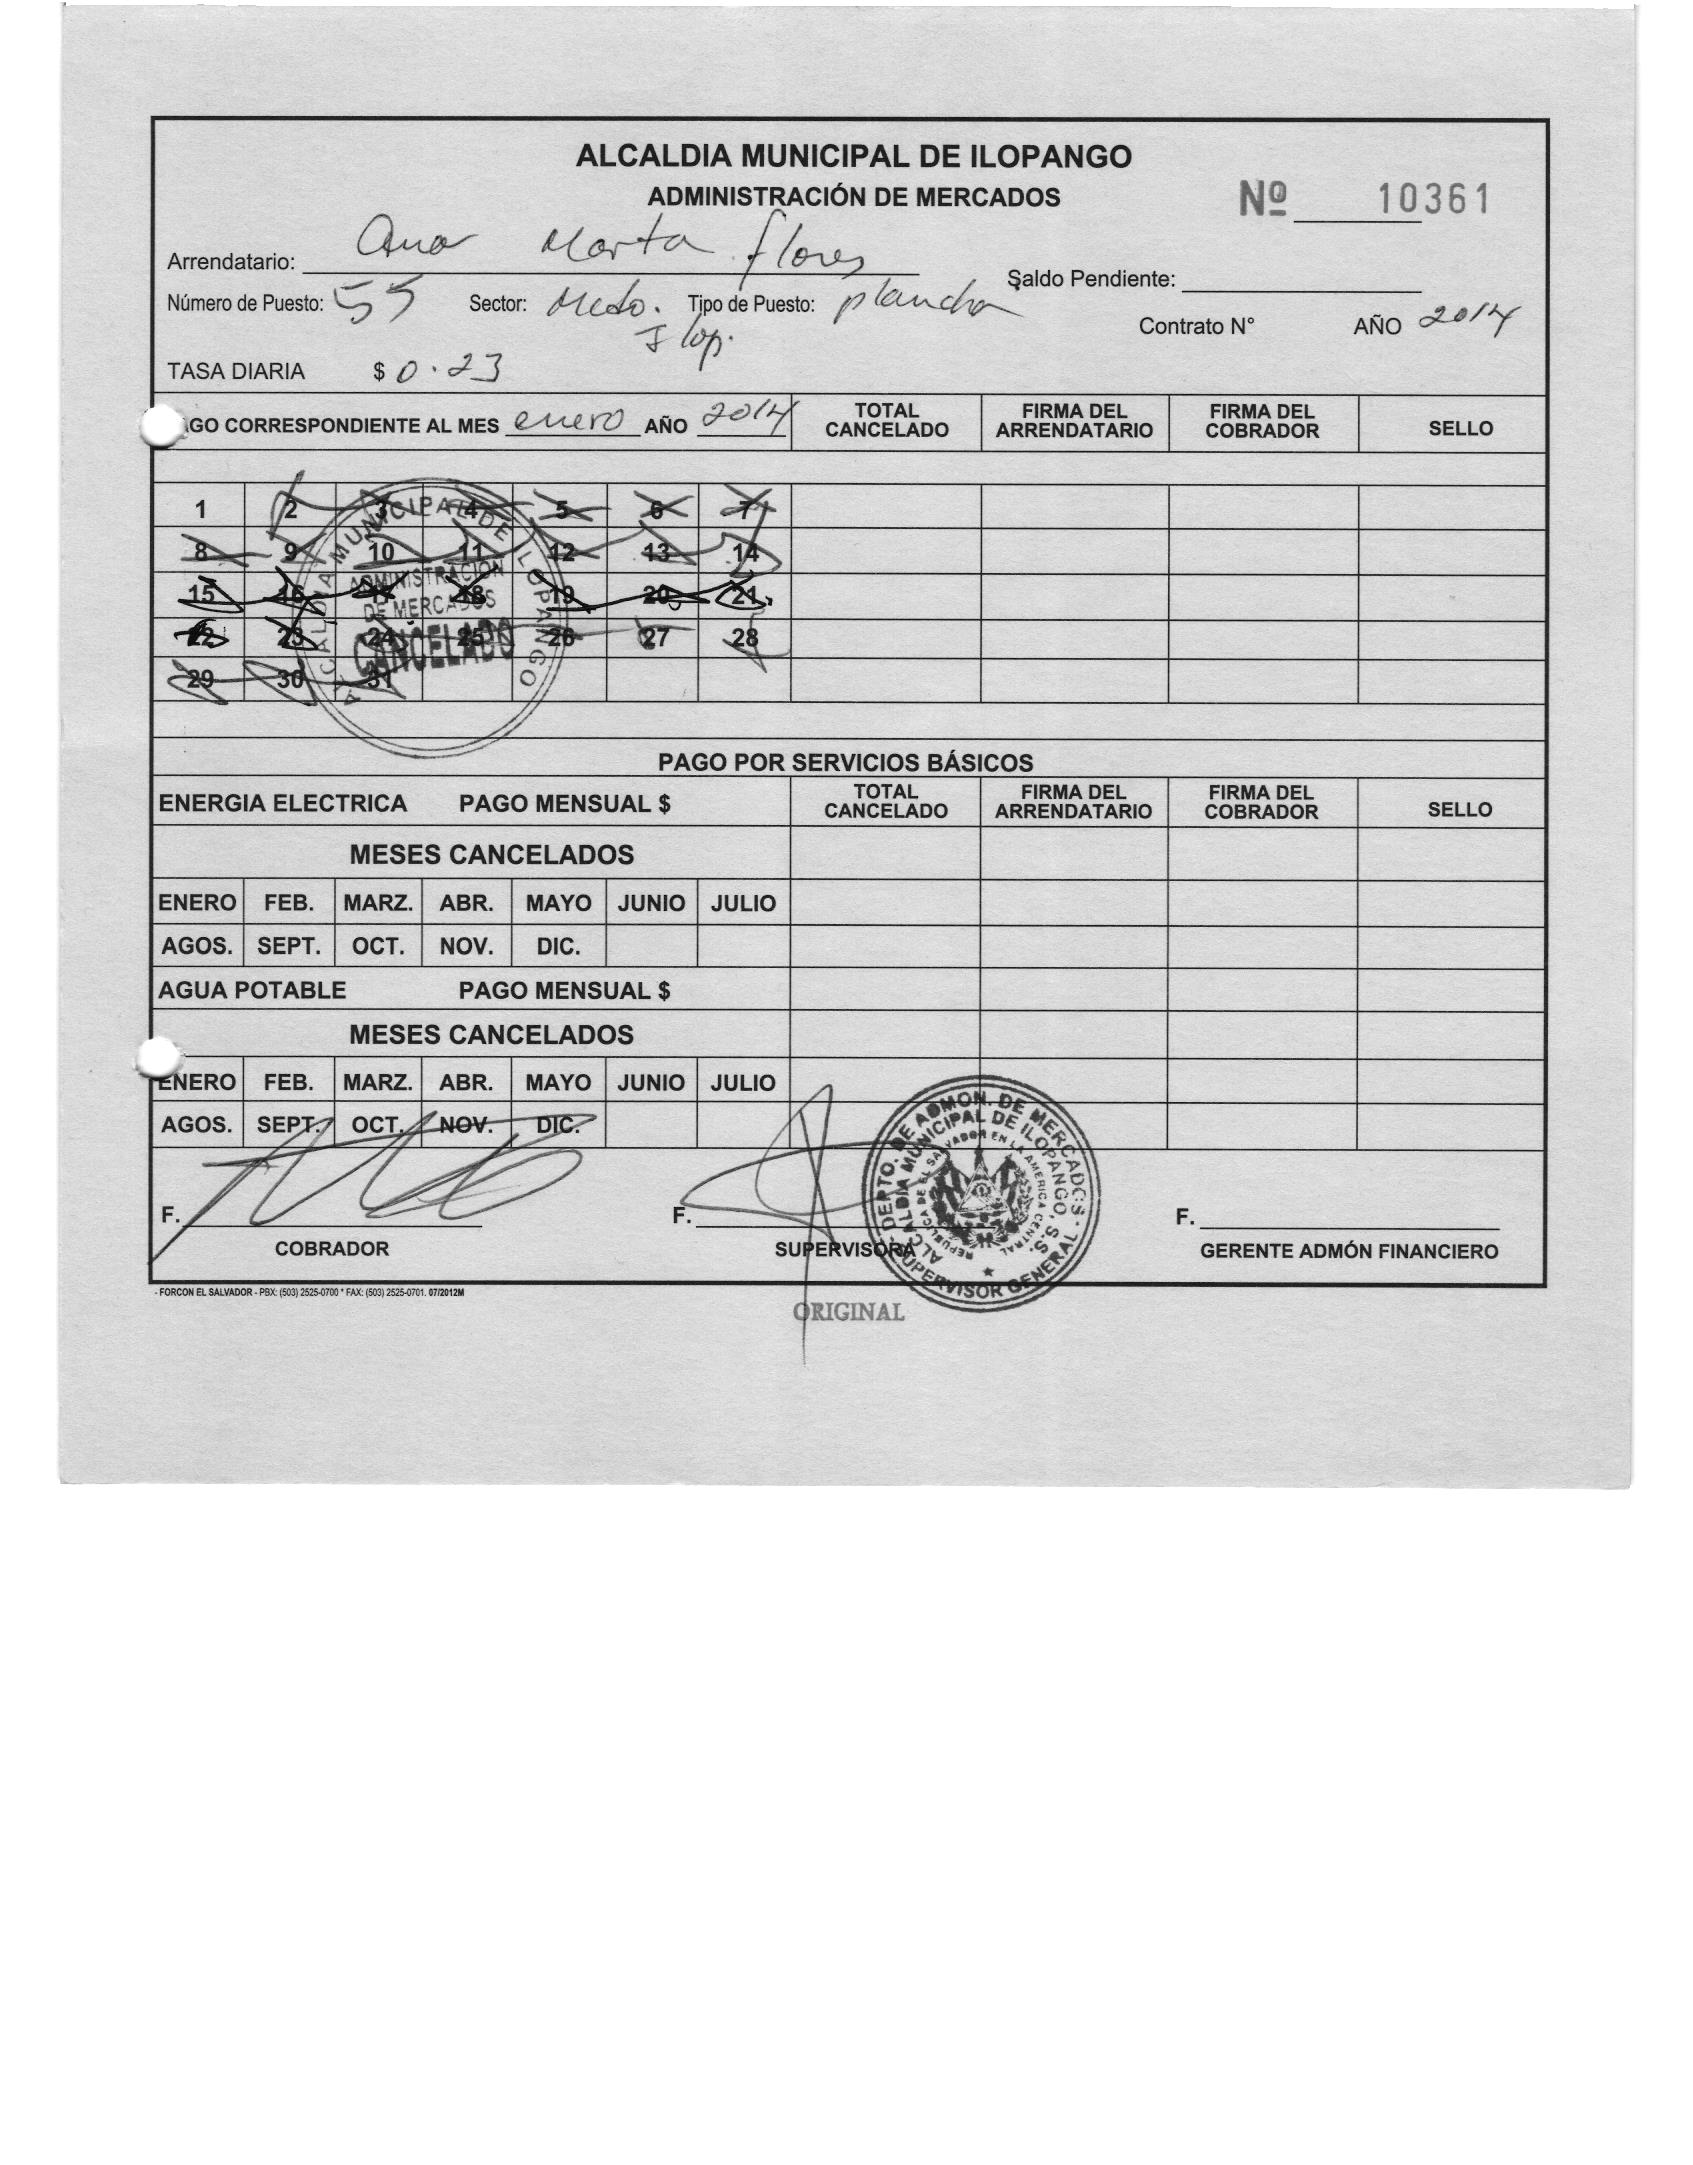 ALCALDIA MUNICIPAL DE ILOPANGO
ADMINISTRACIÓN DE MERCADOS
Nº 10361
Arrendatario: Ana Marta flores
Saldo Pendiente:
Número de Puesto: 55 Sector: Mcdo. Ilop. Tipo de Puesto: plancha
Contrato N° AÑO 2014
TASA DIARIA $ 0.23
GO CORRESPONDIENTE AL MES enero AÑO 2014 TOTAL CANCELADO FIRMA DEL ARRENDATARIO FIRMA DEL COBRADOR SELLO
1 2 3 4 5 6 7
8 9 10 11 12 13 14
15 16 17 18 19 20 21
22 23 24 25 26 27 28
29 30 31
ALCALDIA MUNICIPAL DE ILOPANGO
ADMINISTRACION
DE MERCADOS
CANCELADO
PAGO POR SERVICIOS BÁSICOS
ENERGIA ELECTRICA PAGO MENSUAL $ TOTAL CANCELADO FIRMA DEL ARRENDATARIO FIRMA DEL COBRADOR SELLO
MESES CANCELADOS
ENERO FEB. MARZ. ABR. MAYO JUNIO JULIO
AGOS. SEPT. OCT. NOV. DIC.
AGUA POTABLE PAGO MENSUAL $
MESES CANCELADOS
ENERO FEB. MARZ. ABR. MAYO JUNIO JULIO
AGOS. SEPT. OCT. NOV. DIC.
DEPTO. DE ADMON. DE MERCADOS -
ALCALDIA MUNICIPAL DE ILOPANGO, S.S.
REPUBLICA DE EL SALVADOR EN LA AMERICA CENTRAL
SUPERVISOR GENERAL
F. F. F.
COBRADOR SUPERVISORA GERENTE ADMÓN FINANCIERO
- FORCON EL SALVADOR - PBX: (503) 2525-0700 * FAX: (503) 2525-0701. 07/2012M
ORIGINAL